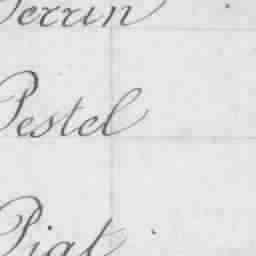 Perrin
Pestel
Piat